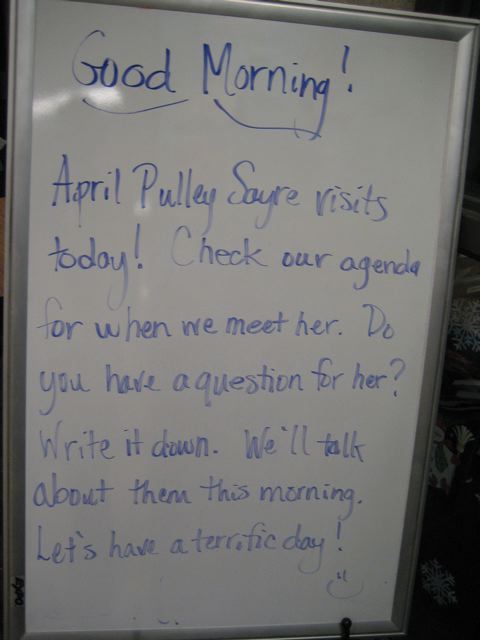 Good Morning!
April Pulley Sayre visits
today! Check our agenda
for when we meet her. Do
you have a question for her?
Write it down. We'll talk
about them this morning.
Let's have a terrific day!